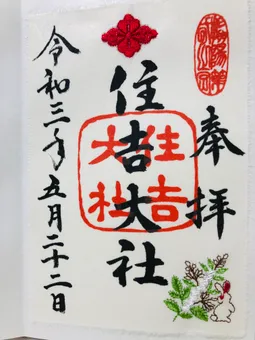 奉拝
住吉大社
住吉
大社
令和三年五月二十二日